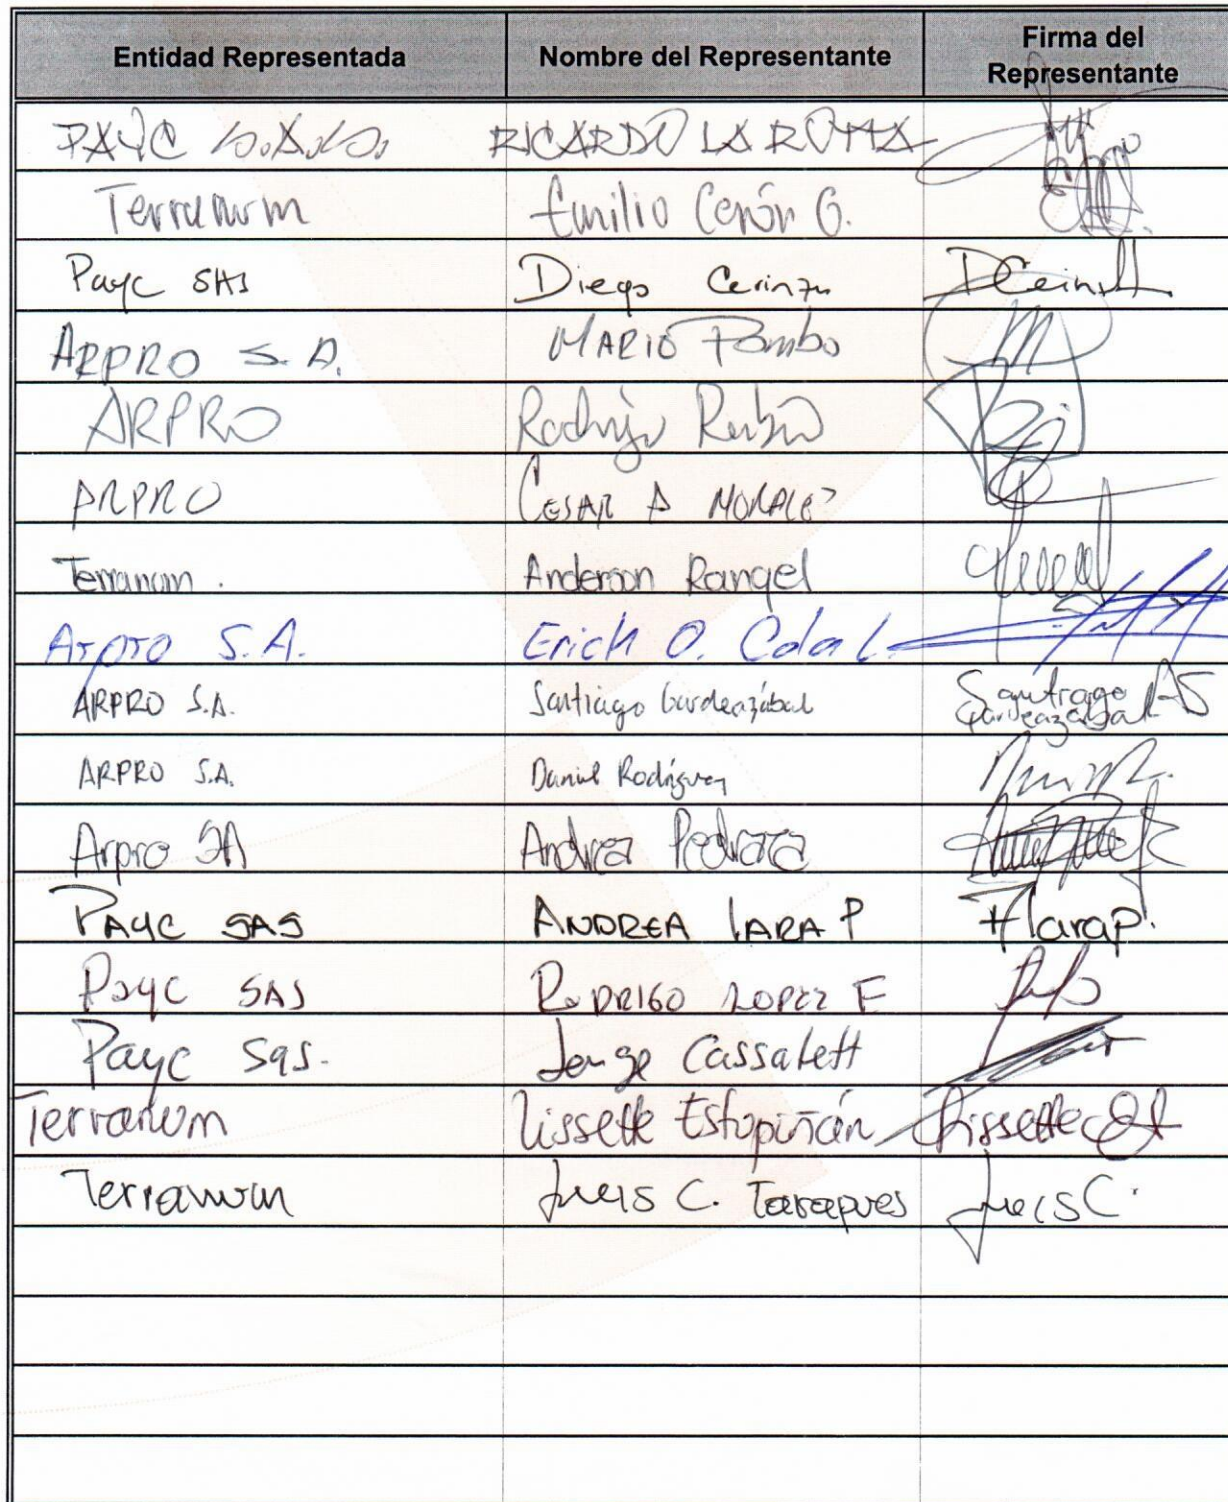 Entidad Representada Nombre del Representante Firma del Representante
PAYC S.A.S. RICARDO LA ROTTA
Terranum Emilio Cerón G.
Payc SAS Diego Cerinza
ARPRO S.A. MARIO Pombo
ARPRO Rodrigo Rubio
ARPRO CESAR A MORALES
Terranum. Anderson Rangel
Arpro S.A. Erich O.
ARPRO S.A. Santiago Gardeazábal Santiago Gardeazabal
ARPRO S.A. Daniel Rodríguez
Arpro SA Andrea Pedraza
PAYC SAS ANDREA LARA P Larap.
Payc SAS RODRIGO LOPEZ F
Payc Sas. Jorge Cassalett
Terranum Lissette Estupiñán Lissette
Terranum Luis C. Tarapues Luis C.